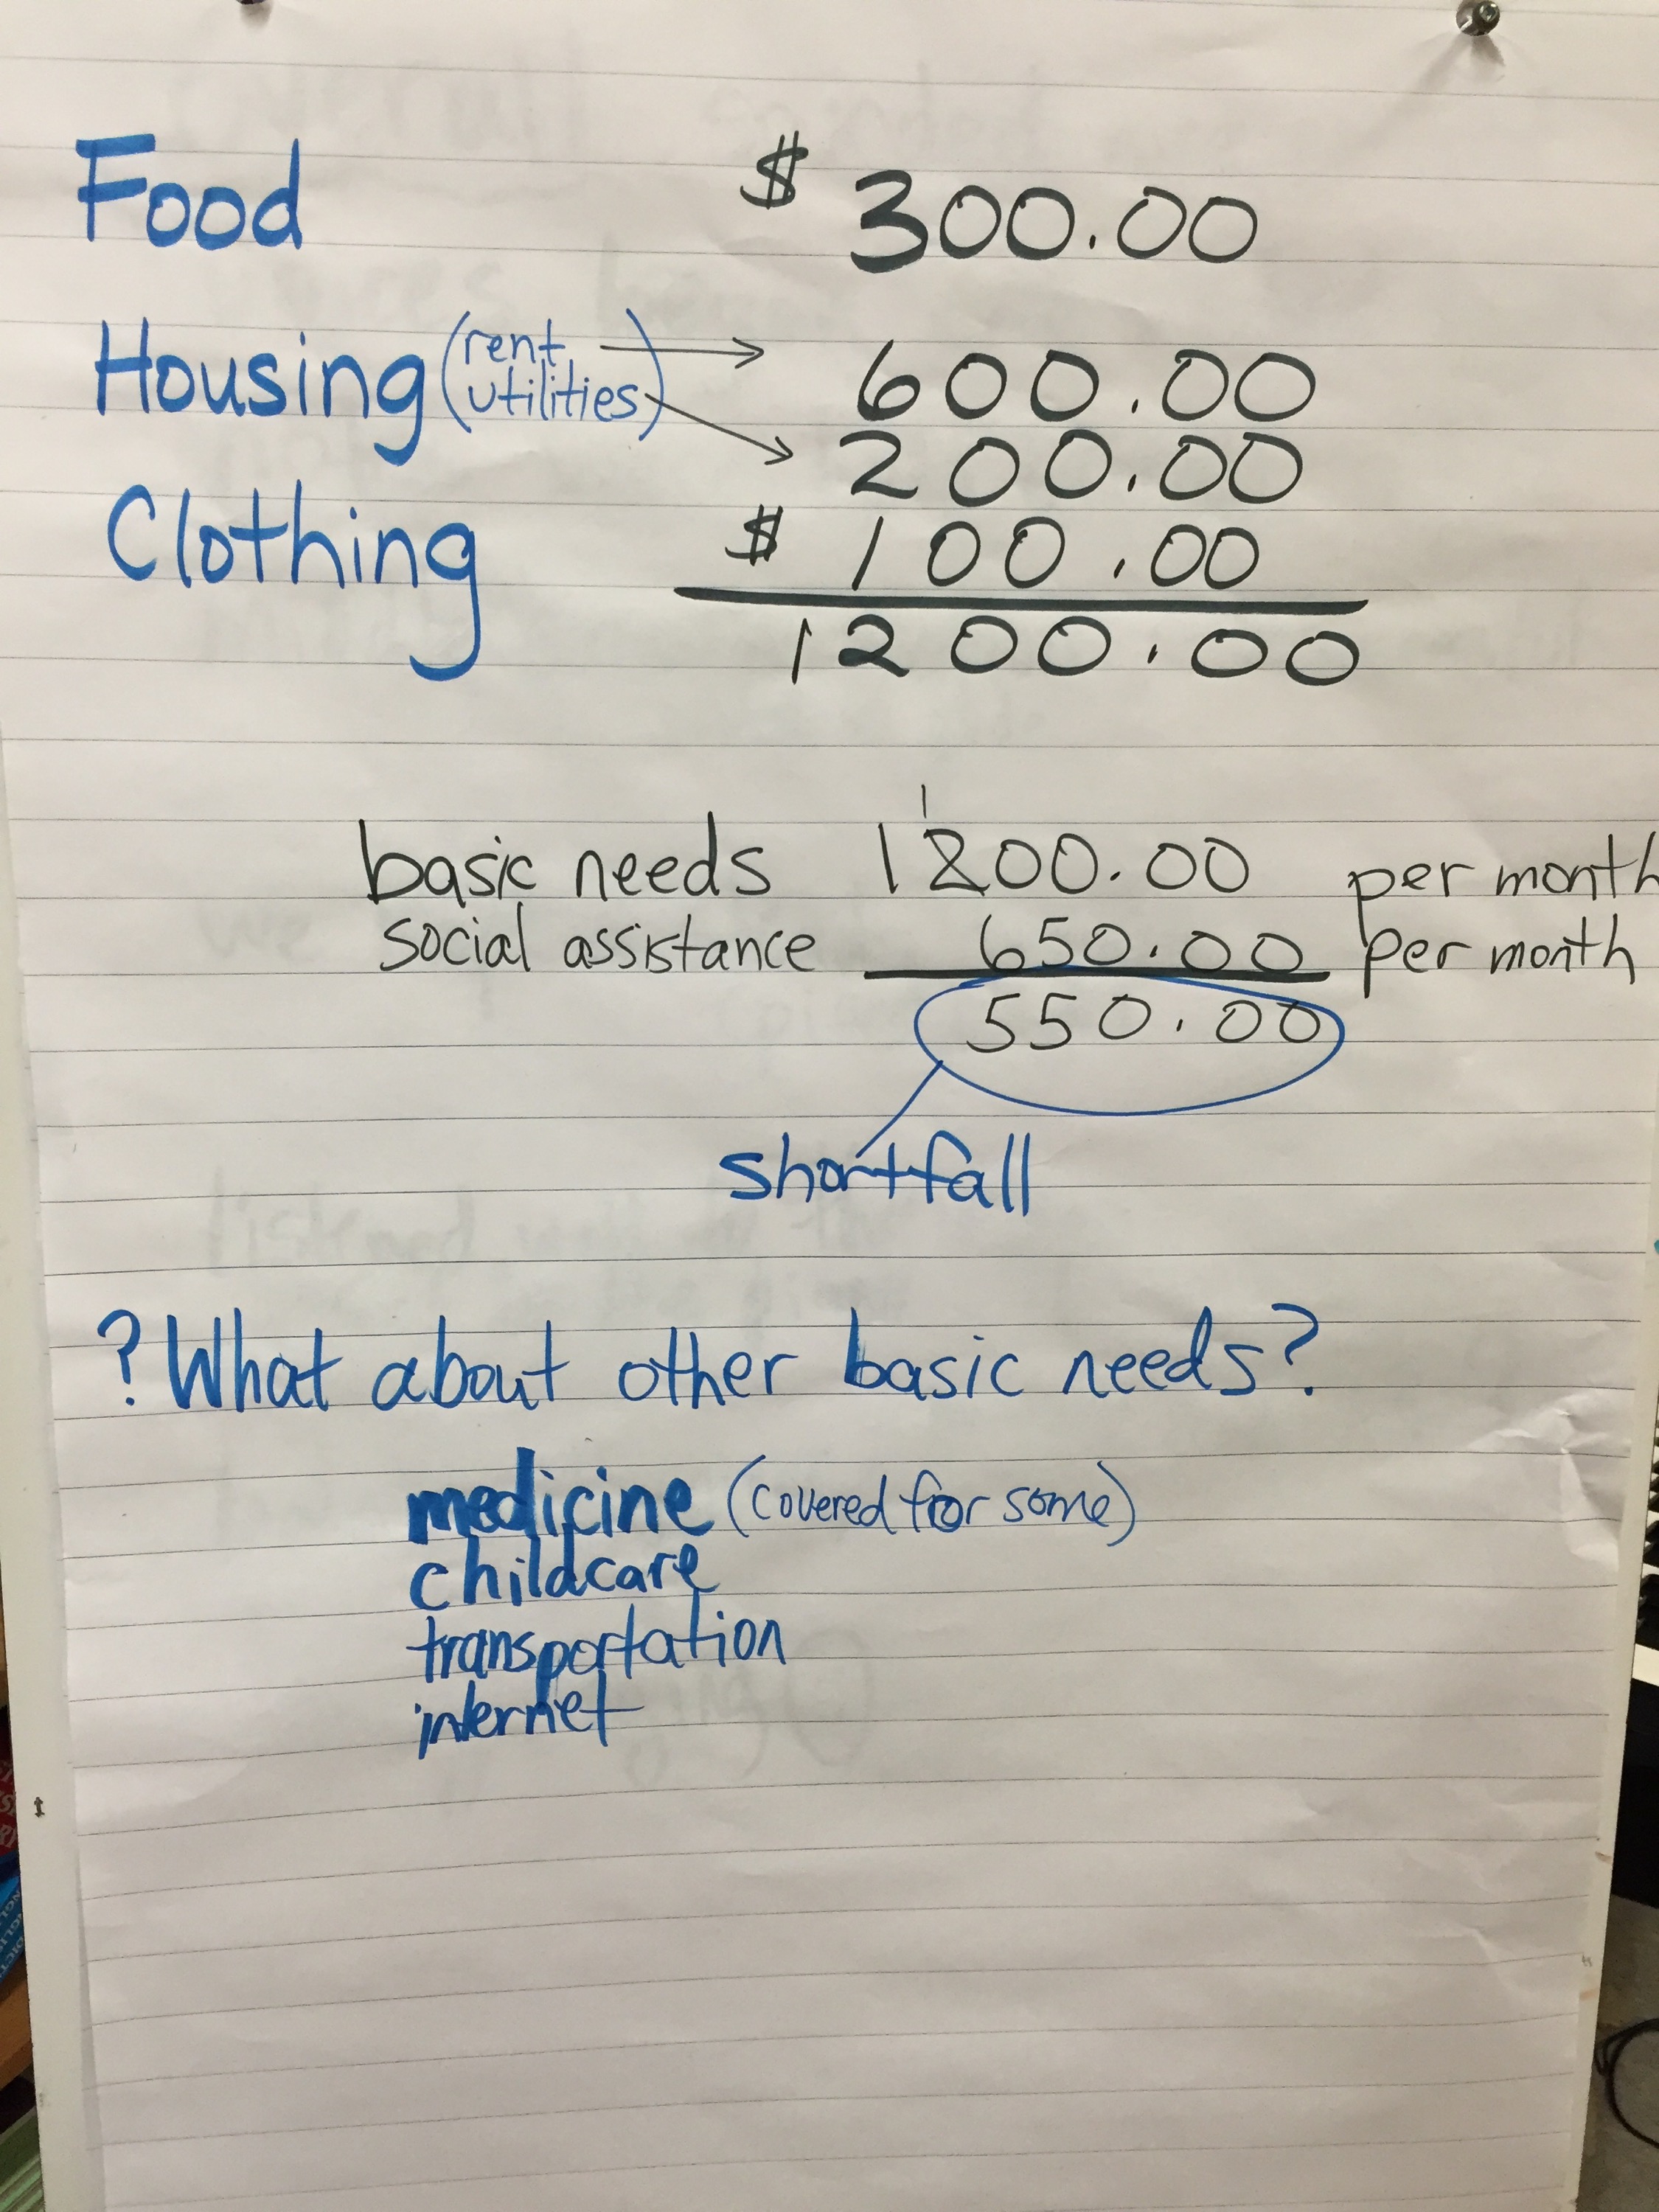 Food $ 300.00
Housing (rent, → 600.00
utilities) → 200.00
Clothing $ 100.00
1200.00
1
basic needs 1200.00 per month
social assistance 650.00 per month
550.00
shortfall
? What about other basic needs?
medicine (covered for some)
childcare
transportation
internet